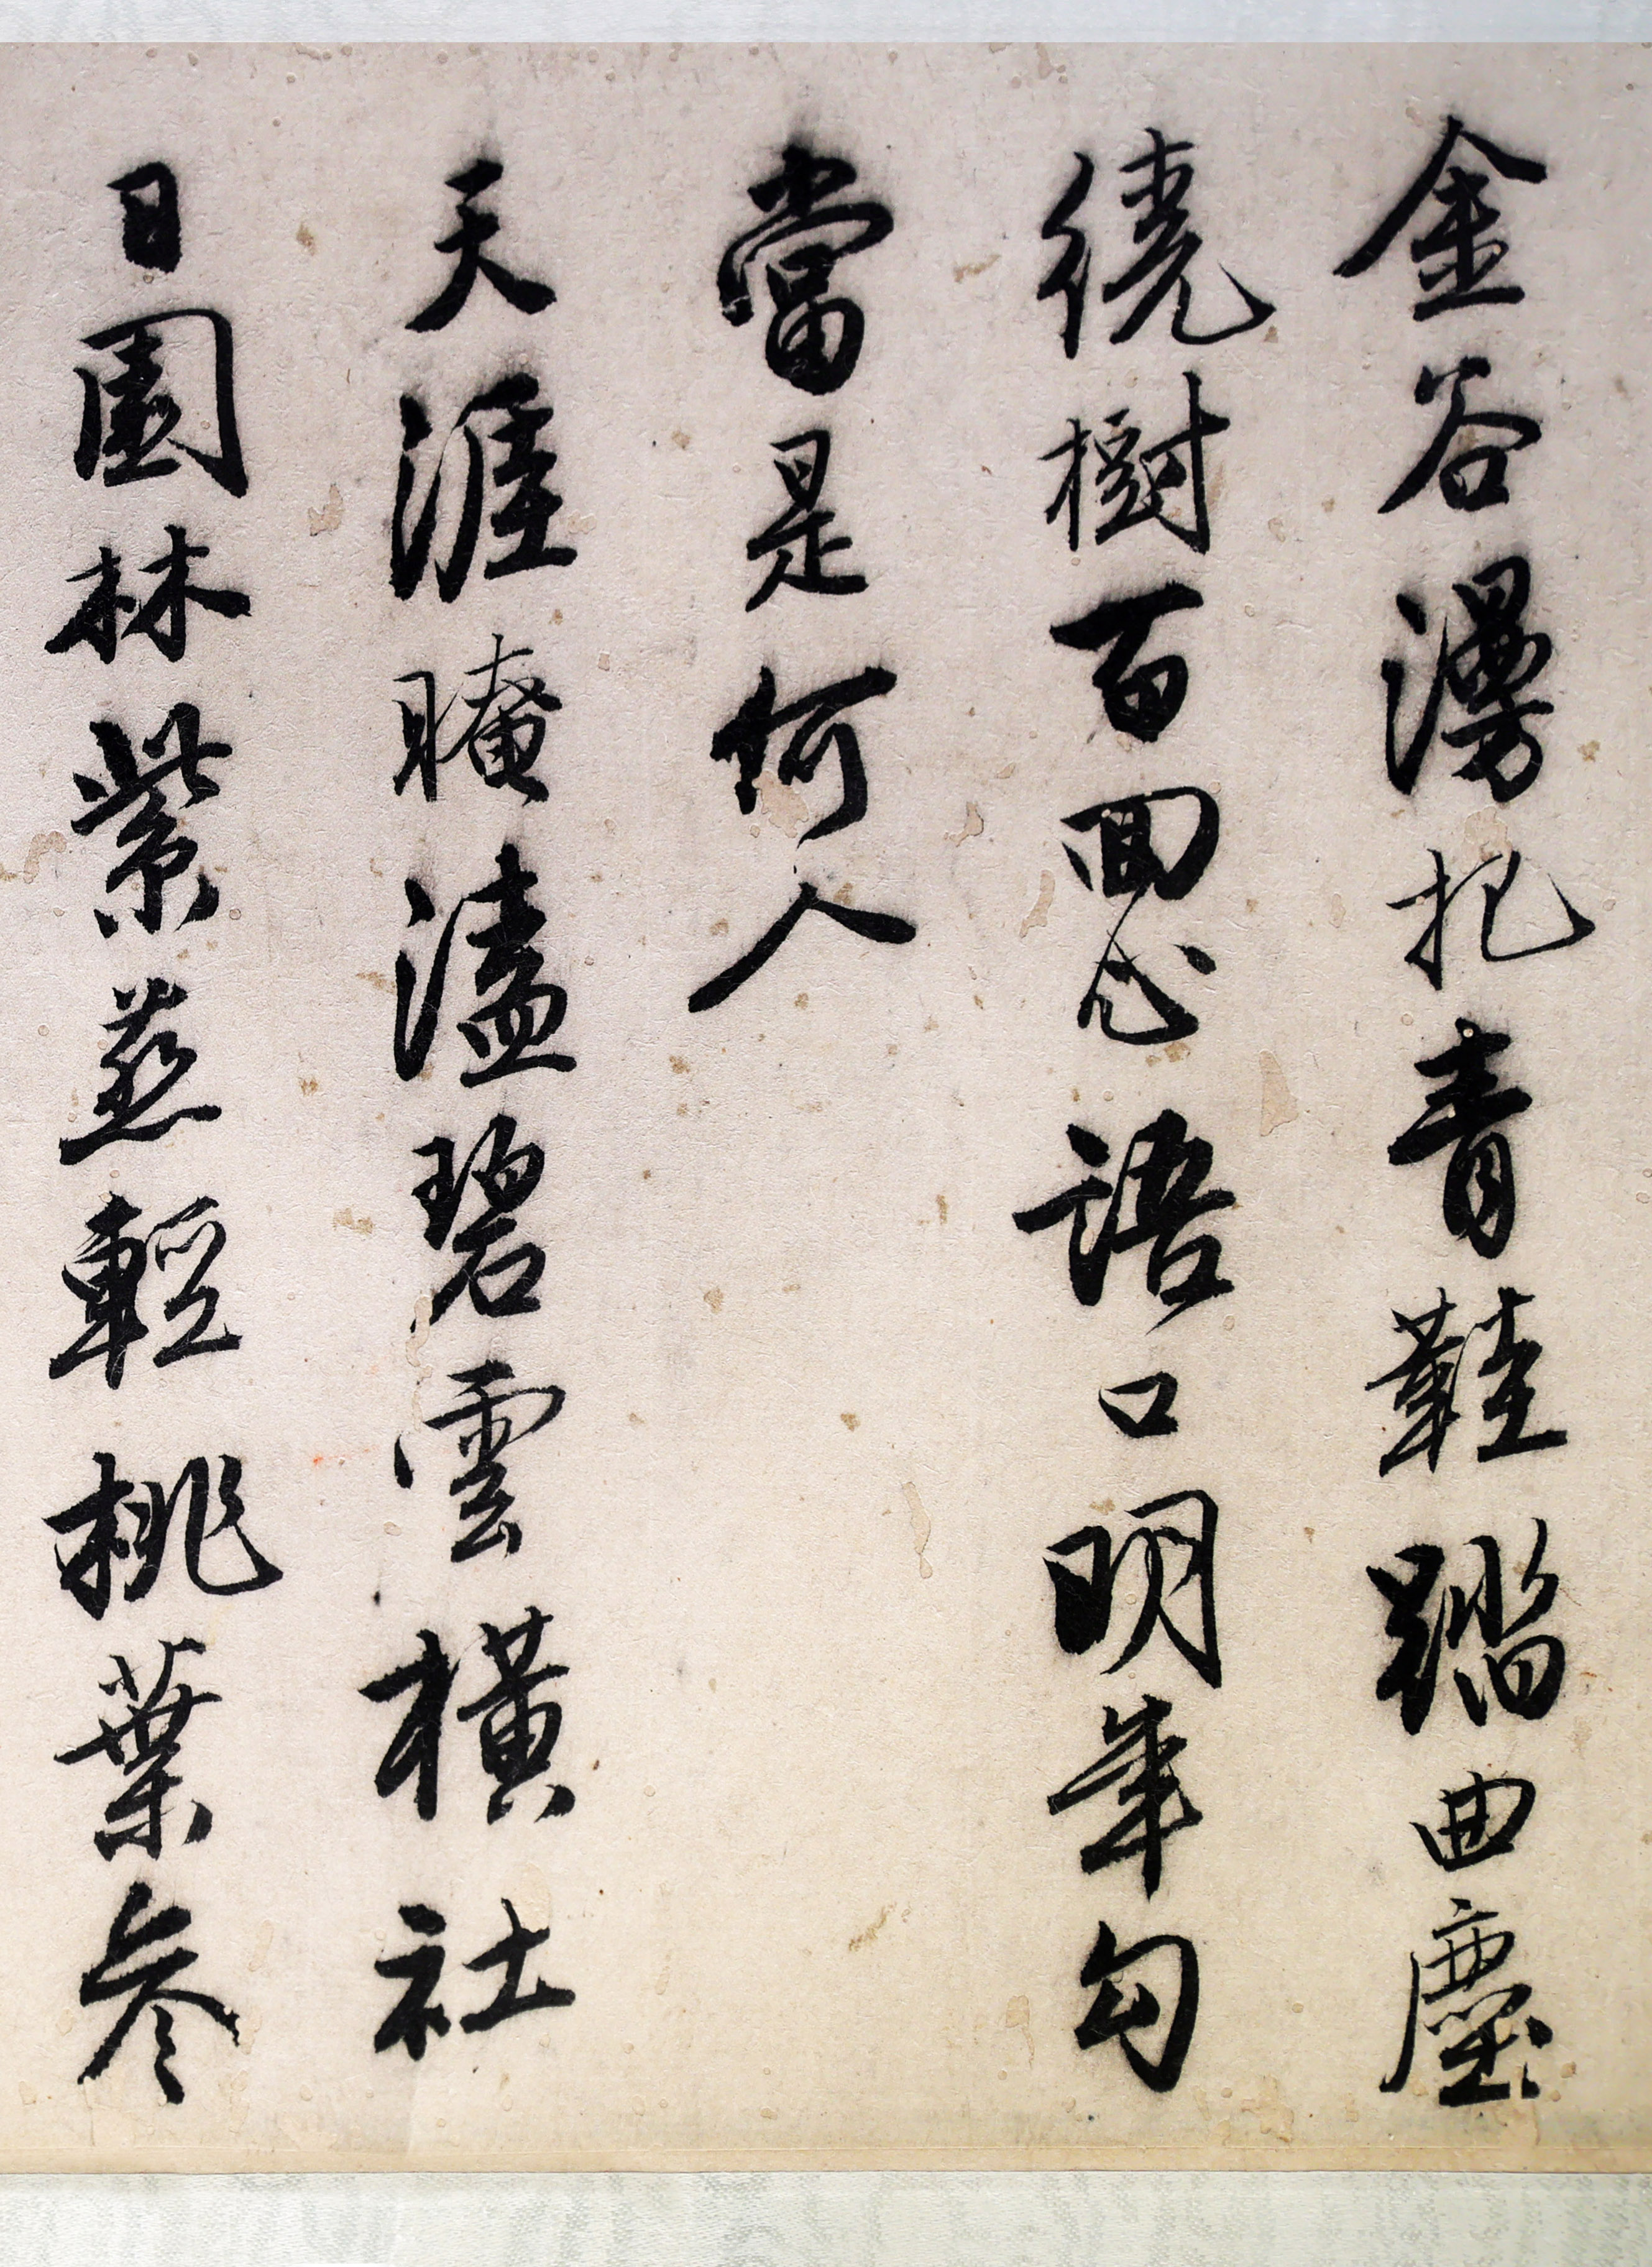 金谷漫把青鞋踏曲塵
繞樹百回心語口明年勾
當是何人
天涯晻溘碧雲橫社
日園林紫燕輕桃葉參